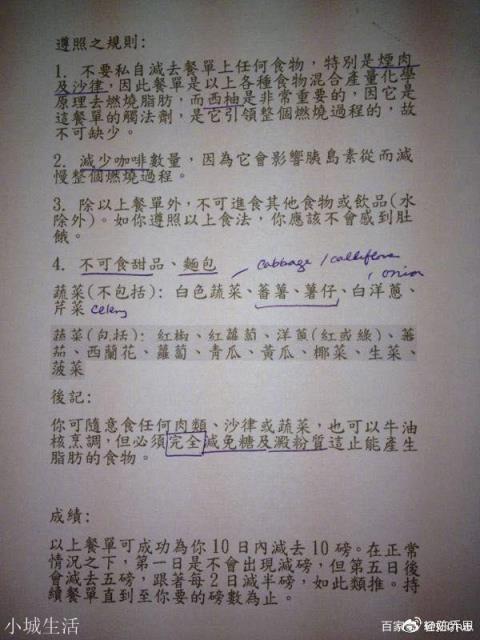 遵照之規則:
1. 不要私自減去餐單上任何食物, 特別是煙肉
及沙律, 因此餐單是以上各種食物混合產量化學
原理去燃燒脂肪, 而西柚是非常重要的, 因它是
這餐單的觸法劑, 是它引領整個燃燒過程的, 故
不可缺少。
2. 減少咖啡數量, 因為它會影響胰島素從而減
慢整個燃燒過程。
3. 除以上餐單外, 不可進食其他食物或飲品(水
除外)。如你遵照以上食法, 你應該不會感到肚
餓。
4. 不可食甜品、麵包
cabbage / califlora
, onion
蔬菜(不包括): 白色蔬菜、蕃薯、薯仔、白洋蔥、
芹菜 celery
蔬菜(包括): 紅椒、紅蘿蔔、洋蔥(紅或綠)、蕃
茄、西蘭花、蘿蔔、青瓜、黃瓜、椰菜、生菜、
菠菜
後記:
你可隨意食任何肉類、沙律或蔬菜, 也可以牛油
核烹調, 但必須完全減免糖及澱粉質這止能產生
脂肪的食物。
成績:
以上餐單可成功為你10日內減去10磅。在正常
情況之下, 第一日是不會出現減磅, 但第五日後
會減去五磅, 跟著每2日減半磅, 如此類推。持
續餐單直到至你要的磅數為止。
小城生活
百家